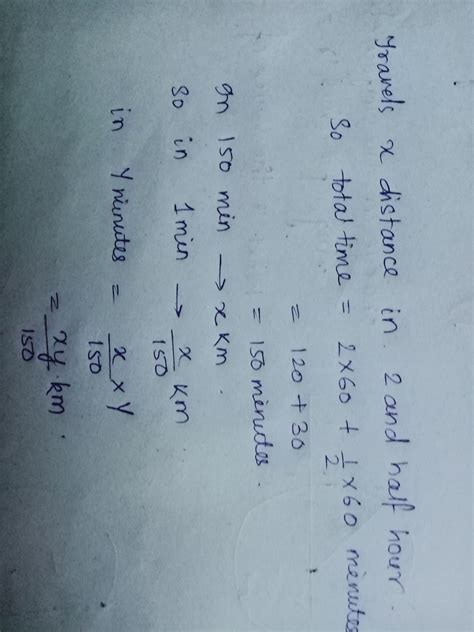 Travels x distance in 2 and half hour.
So total time = 2×60 + 1/2 ×60 minutes
= 120 + 30
= 150 minutes.
In 150 min → x km.
So in 1 min → x/150 km
in y minutes = x/150 × y
= xy/150 km.